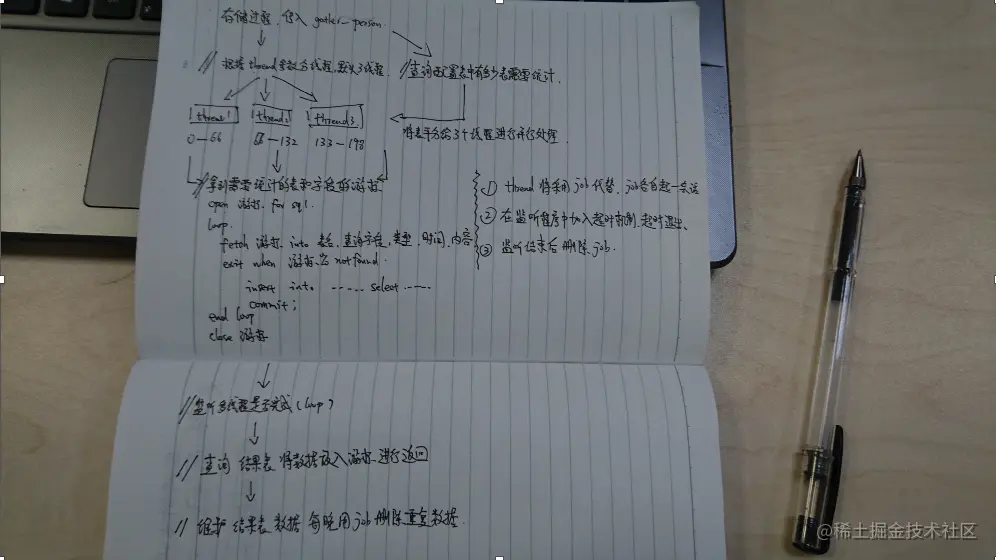 存储过程，传入 gather_person.
// 根据 thread 参数分线程，默认3线程.
// 查询配置表中有多少表需要统计.
thread1 thread2 thread3.
0—66 66—132 133—198
将表平分给3个线程进行并行处理.
// 拿到需要统计的表和字段的游标.
open 游标 for sql.
loop.
fetch 游标 into 表名, 查询字段, 类型, 时间, 内容
exit when 游标%notfound.
insert into ------ select ------
commit;
end loop
close 游标
① thread 将采用 job 代替, job会自起一会话
② 在监听程序中加入超时机制, 超时退出.
③ 监听结束后删除 job.
// 监听多线程是否完成 (loop)
// 查询 结果表 将数据放入游标 进行返回
// 维护 结果表 数据 每晚用 job 删除重复数据.
@稀土掘金技术社区